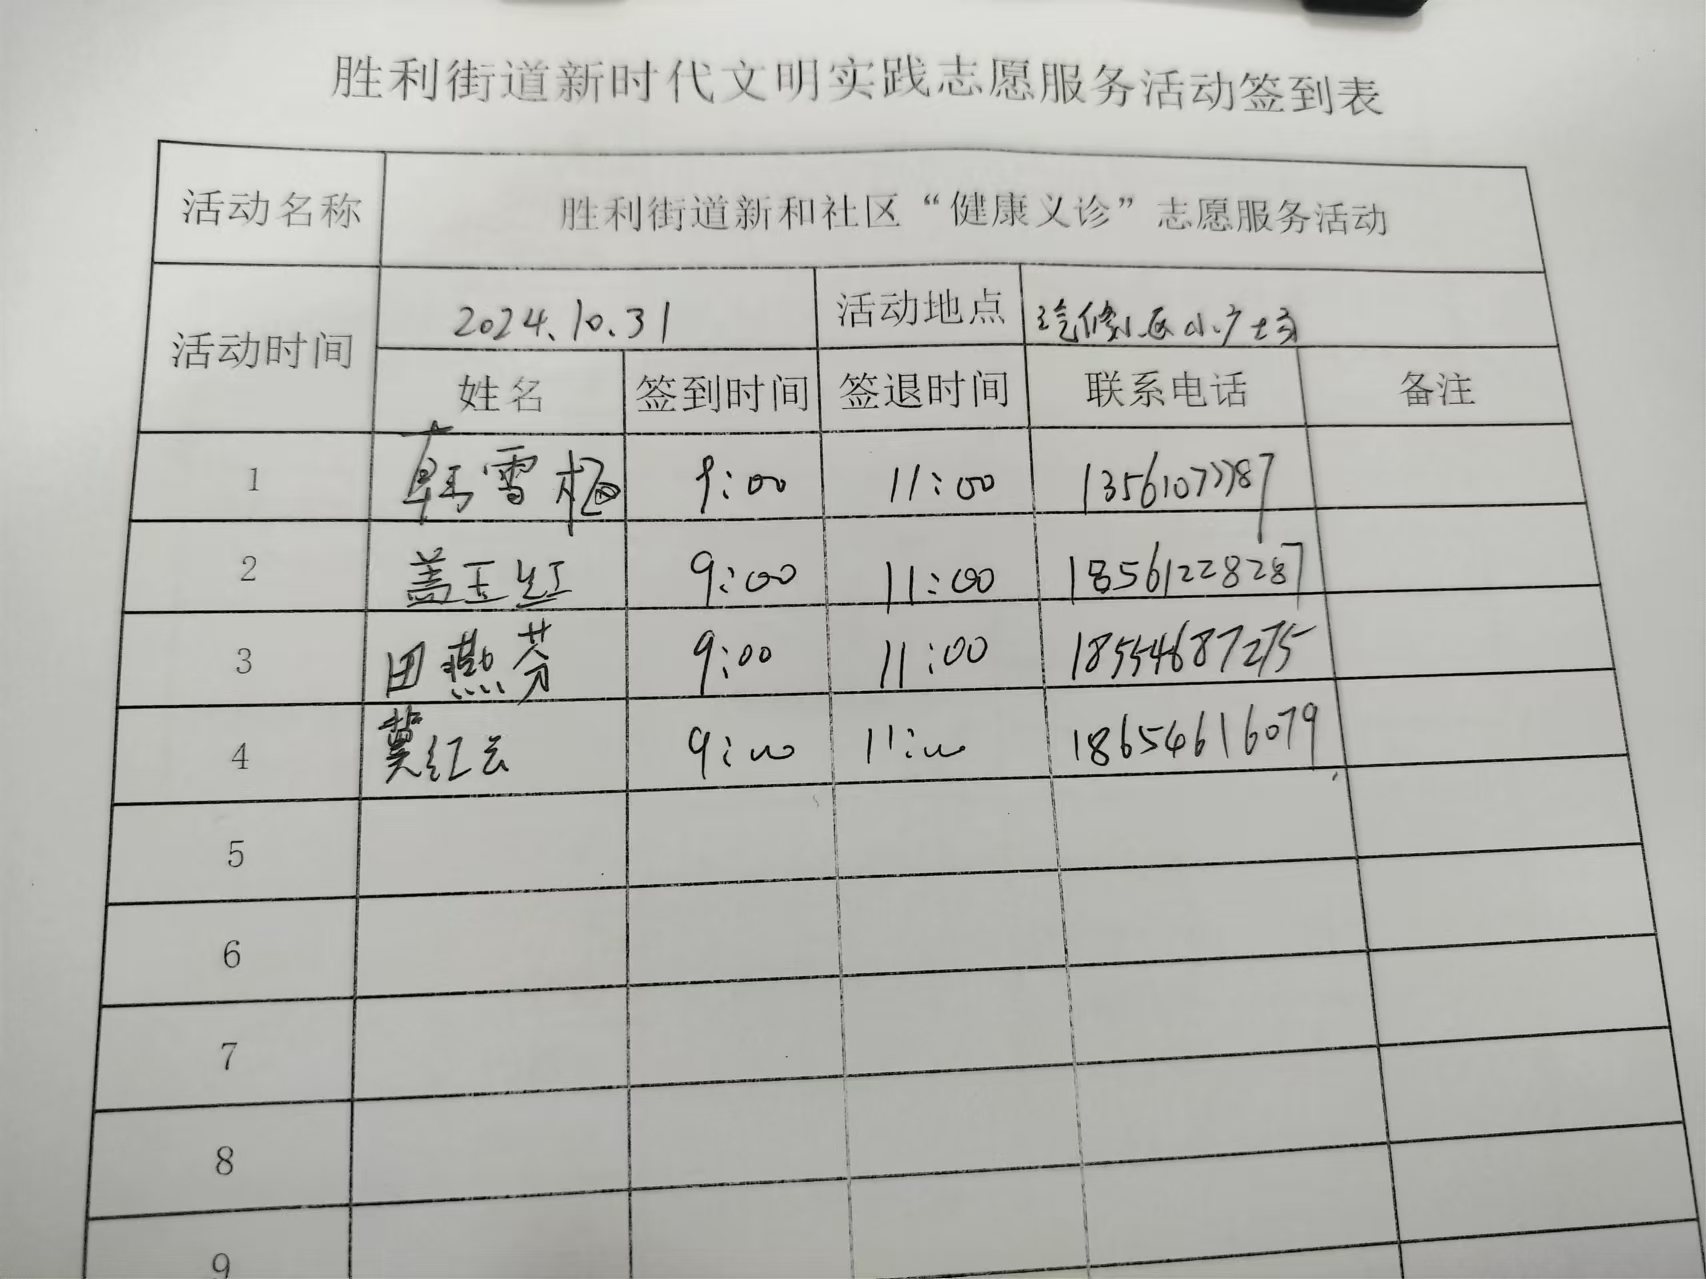 胜利街道新时代文明实践志愿服务活动签到表
活动名称 胜利街道新和社区“健康义诊”志愿服务活动
活动时间 2024.10.31 活动地点 汽修小区小广场
姓名 签到时间 签退时间 联系电话 备注
1 韩雪梅 9:00 11:00
2 盖玉红 9:00 11:00 18561228287
3 田燕芬 9:00 11:00 18554687275
4 冀红云 9:00 11:00 18654616079
5
6
7
8
9